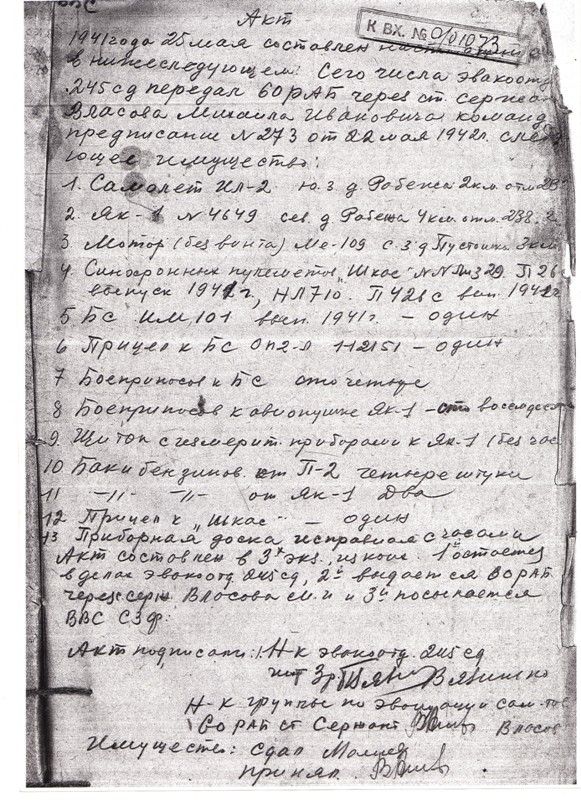 Акт
К ВХ. № 0/01073
1941 года 25 мая составлен
в нижеследующем: Сего числа эвакоотд
245 сд передал 60 РАБ через ст. сержан
Власова Михаила Ивановича команд
предписание N 273 от 22 мая 1942 г. след
ющее имущество:
1. Самолет Ил-2 ю.з. д. Рабежа 2 км отм.
2. Як-1 N 4649 сев. д. Рабежа 4 км отм. 238.
3. Мотор (без винта) Ме-109 с.з. д. Пустошка 3 км
4. Синхронных пулеметов "Шкас" NN
выпуск 1941 г, НЛ710. П426с вып. 1941 г
5 БС ИМ 101 вып. 1941 г. - один
6 Прицел к БС ОП2-Л 1-12151 - один
7 Боеприпасов к БС сто четыре
8 Боеприпасов к авиопушке Як-1 - сто восемьдесят
9. Щиток с измерит. приборами к Як-1 (без час
10 Баки бензинов. от П-2 четыре штуки
11 -"- -"- от Як-1 Два
12 Прицел к "Шкас" - один
13 Приборная доска исправная с часами
Акт составлен в 3х экз, из коих 1й остается
в делах эвакоотд 245 сд, 2й выдается 60 РАБ
через серж Власова М.И и 3й посылается
ВВС СЗФ.
Акт подписали: 1. Н-к эвакоотд. 245 сд
Н-к группы по эвакуации сам-тов
60 РАБ ст Сержант Власов
Имущество: сдал
принял